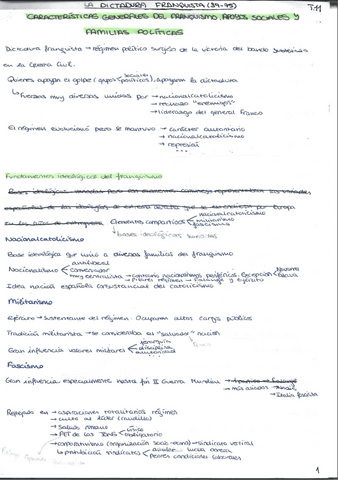 LA DICTADURA FRANQUISTA (39-75) T.11
CARACTERÍSTICAS GENERALES DEL FRANQUISMO, APOYOS SOCIALES Y
FAMILIAS POLÍTICAS
Dictadura franquista → régimen político surgido de la victoria del bando
en la Guerra Civil.
Quienes apoyan el golpe (grupos sociales políticos), apoyaron la dictadura
↳ fuerzas muy diversas unidas por → nacionalcatolicismo
→ rechazo "enemigos"
→ liderazgo del general Franco
El régimen evolucionó pero se mantuvo → carácter autoritario
→ nacionalcatolicismo
→ represión
...
Fundamentos ideológicos del franquismo
Elementos compartidos
nacionalcatolicismo
militarismo
fascismo
↳ bases ideológicas
Nacionalcatolicismo
Base ideológica que unió a diversas familias del franquismo
Nacionalismo
antiliberal
conservador
muy centralista → contrario nacionalismos periféricos. Excepción
Navarra
Álava
→ Pilares régimen → Falange y Ejército
Idea nación española consustancial del catolicismo
Militarismo
Ejército → Sustentante del régimen. Ocuparon altos cargos públicos
Tradición militarista → se consideraba el "salvador" nación
Gran influencia valores militares
jerarquía
disciplina
autoridad
Fascismo
Gran influencia especialmente hasta fin II Guerra Mundial
→ Italia fascista
Reflejada en → aspiraciones totalitarias régimen
→ culto al líder (caudillo)
→ Saludo romano
→ FET de las JONS
único
obligatorio
→ corporativismo (organización socio-econó) → sindicato vertical
↳ prohibición sindicatos
lucha obrera
peores condiciones laborales
1